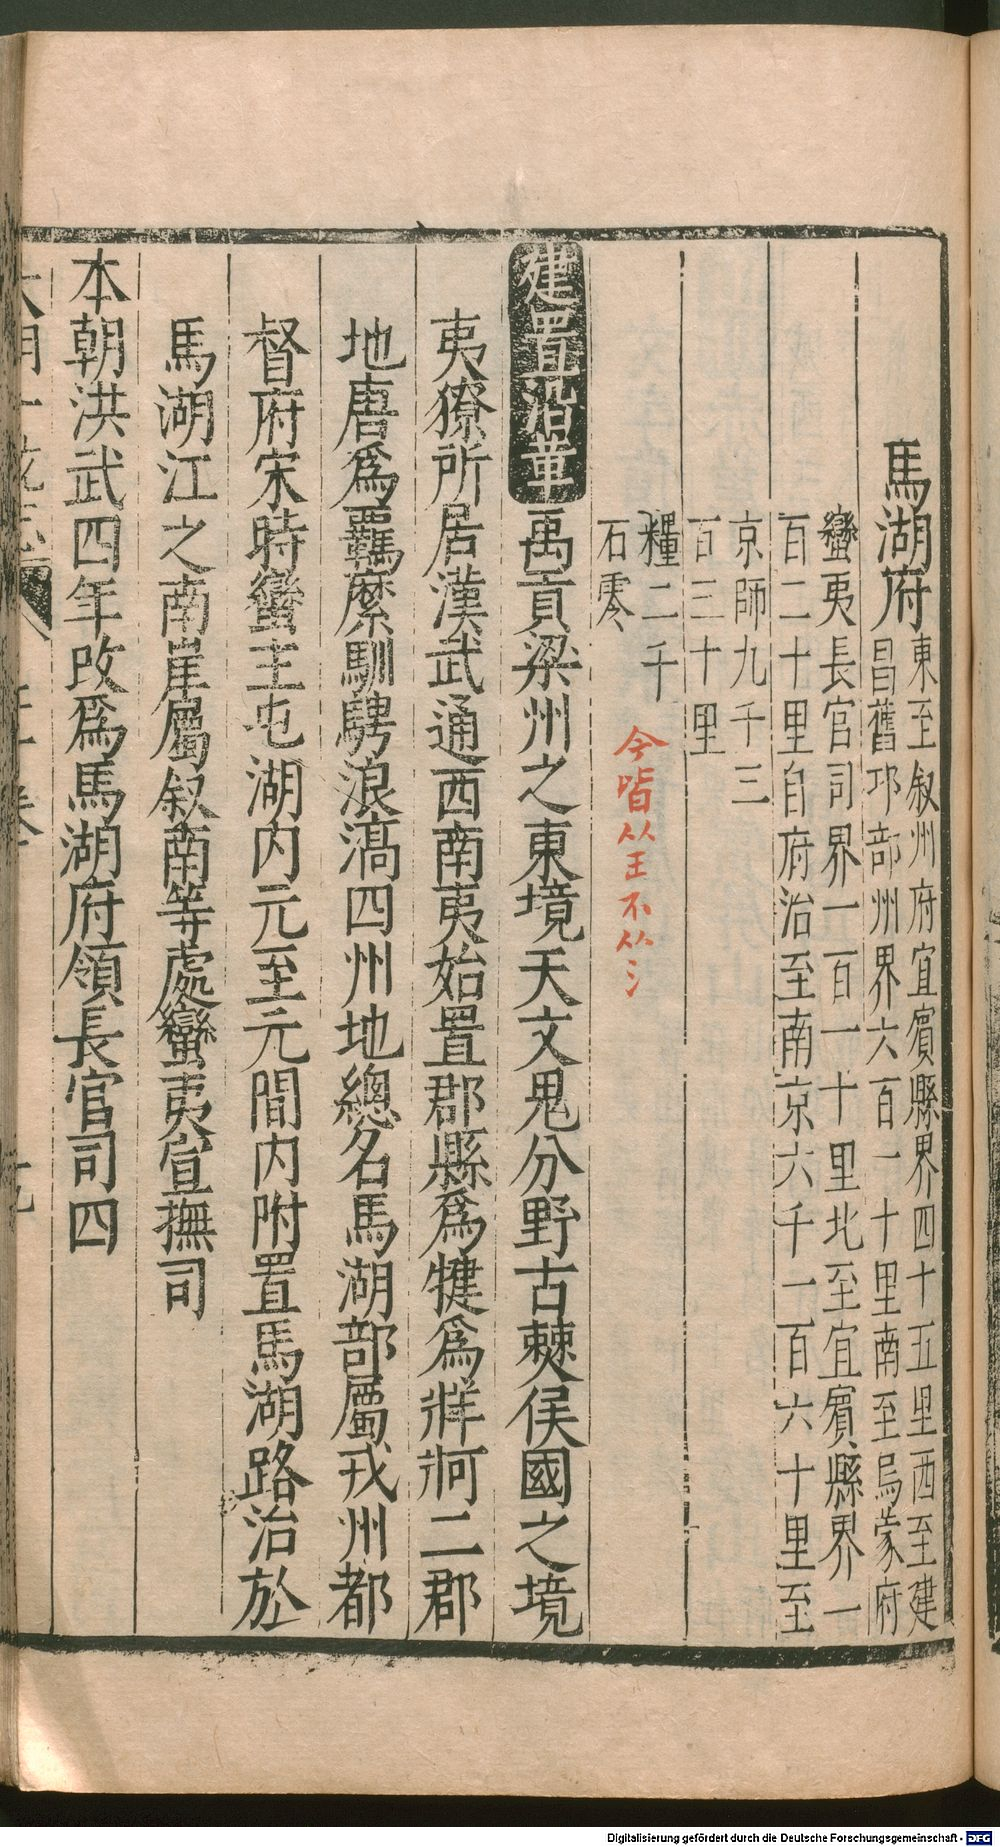 馬湖府
東至叙州府宜賓縣界四十五里西至建
昌舊邛部州界六百一十里南至烏蒙府
蠻夷長官司界一百一十里北至宜賓縣界一
百二十里自府治至南京六千一百六十里至
京師九千三
百三十里
糧二千
石零
今皆从王不从氵
建置沿革禹貢梁州之東境天文鬼分野古僰侯國之境
夷獠所居漢武通西南夷始置郡縣爲犍爲牂牁二郡
地唐爲羈縻馴騁浪滈四州地總名馬湖部屬戎州都
督府宋時蠻主屯湖内元至元間内附置馬湖路治於
馬湖江之南崖屬叙南等處蠻夷宣撫司
本朝洪武四年改爲馬湖府領長官司四
Digitalisierung gefördert durch die Deutsche Forschungsgemeinschaft - DFG